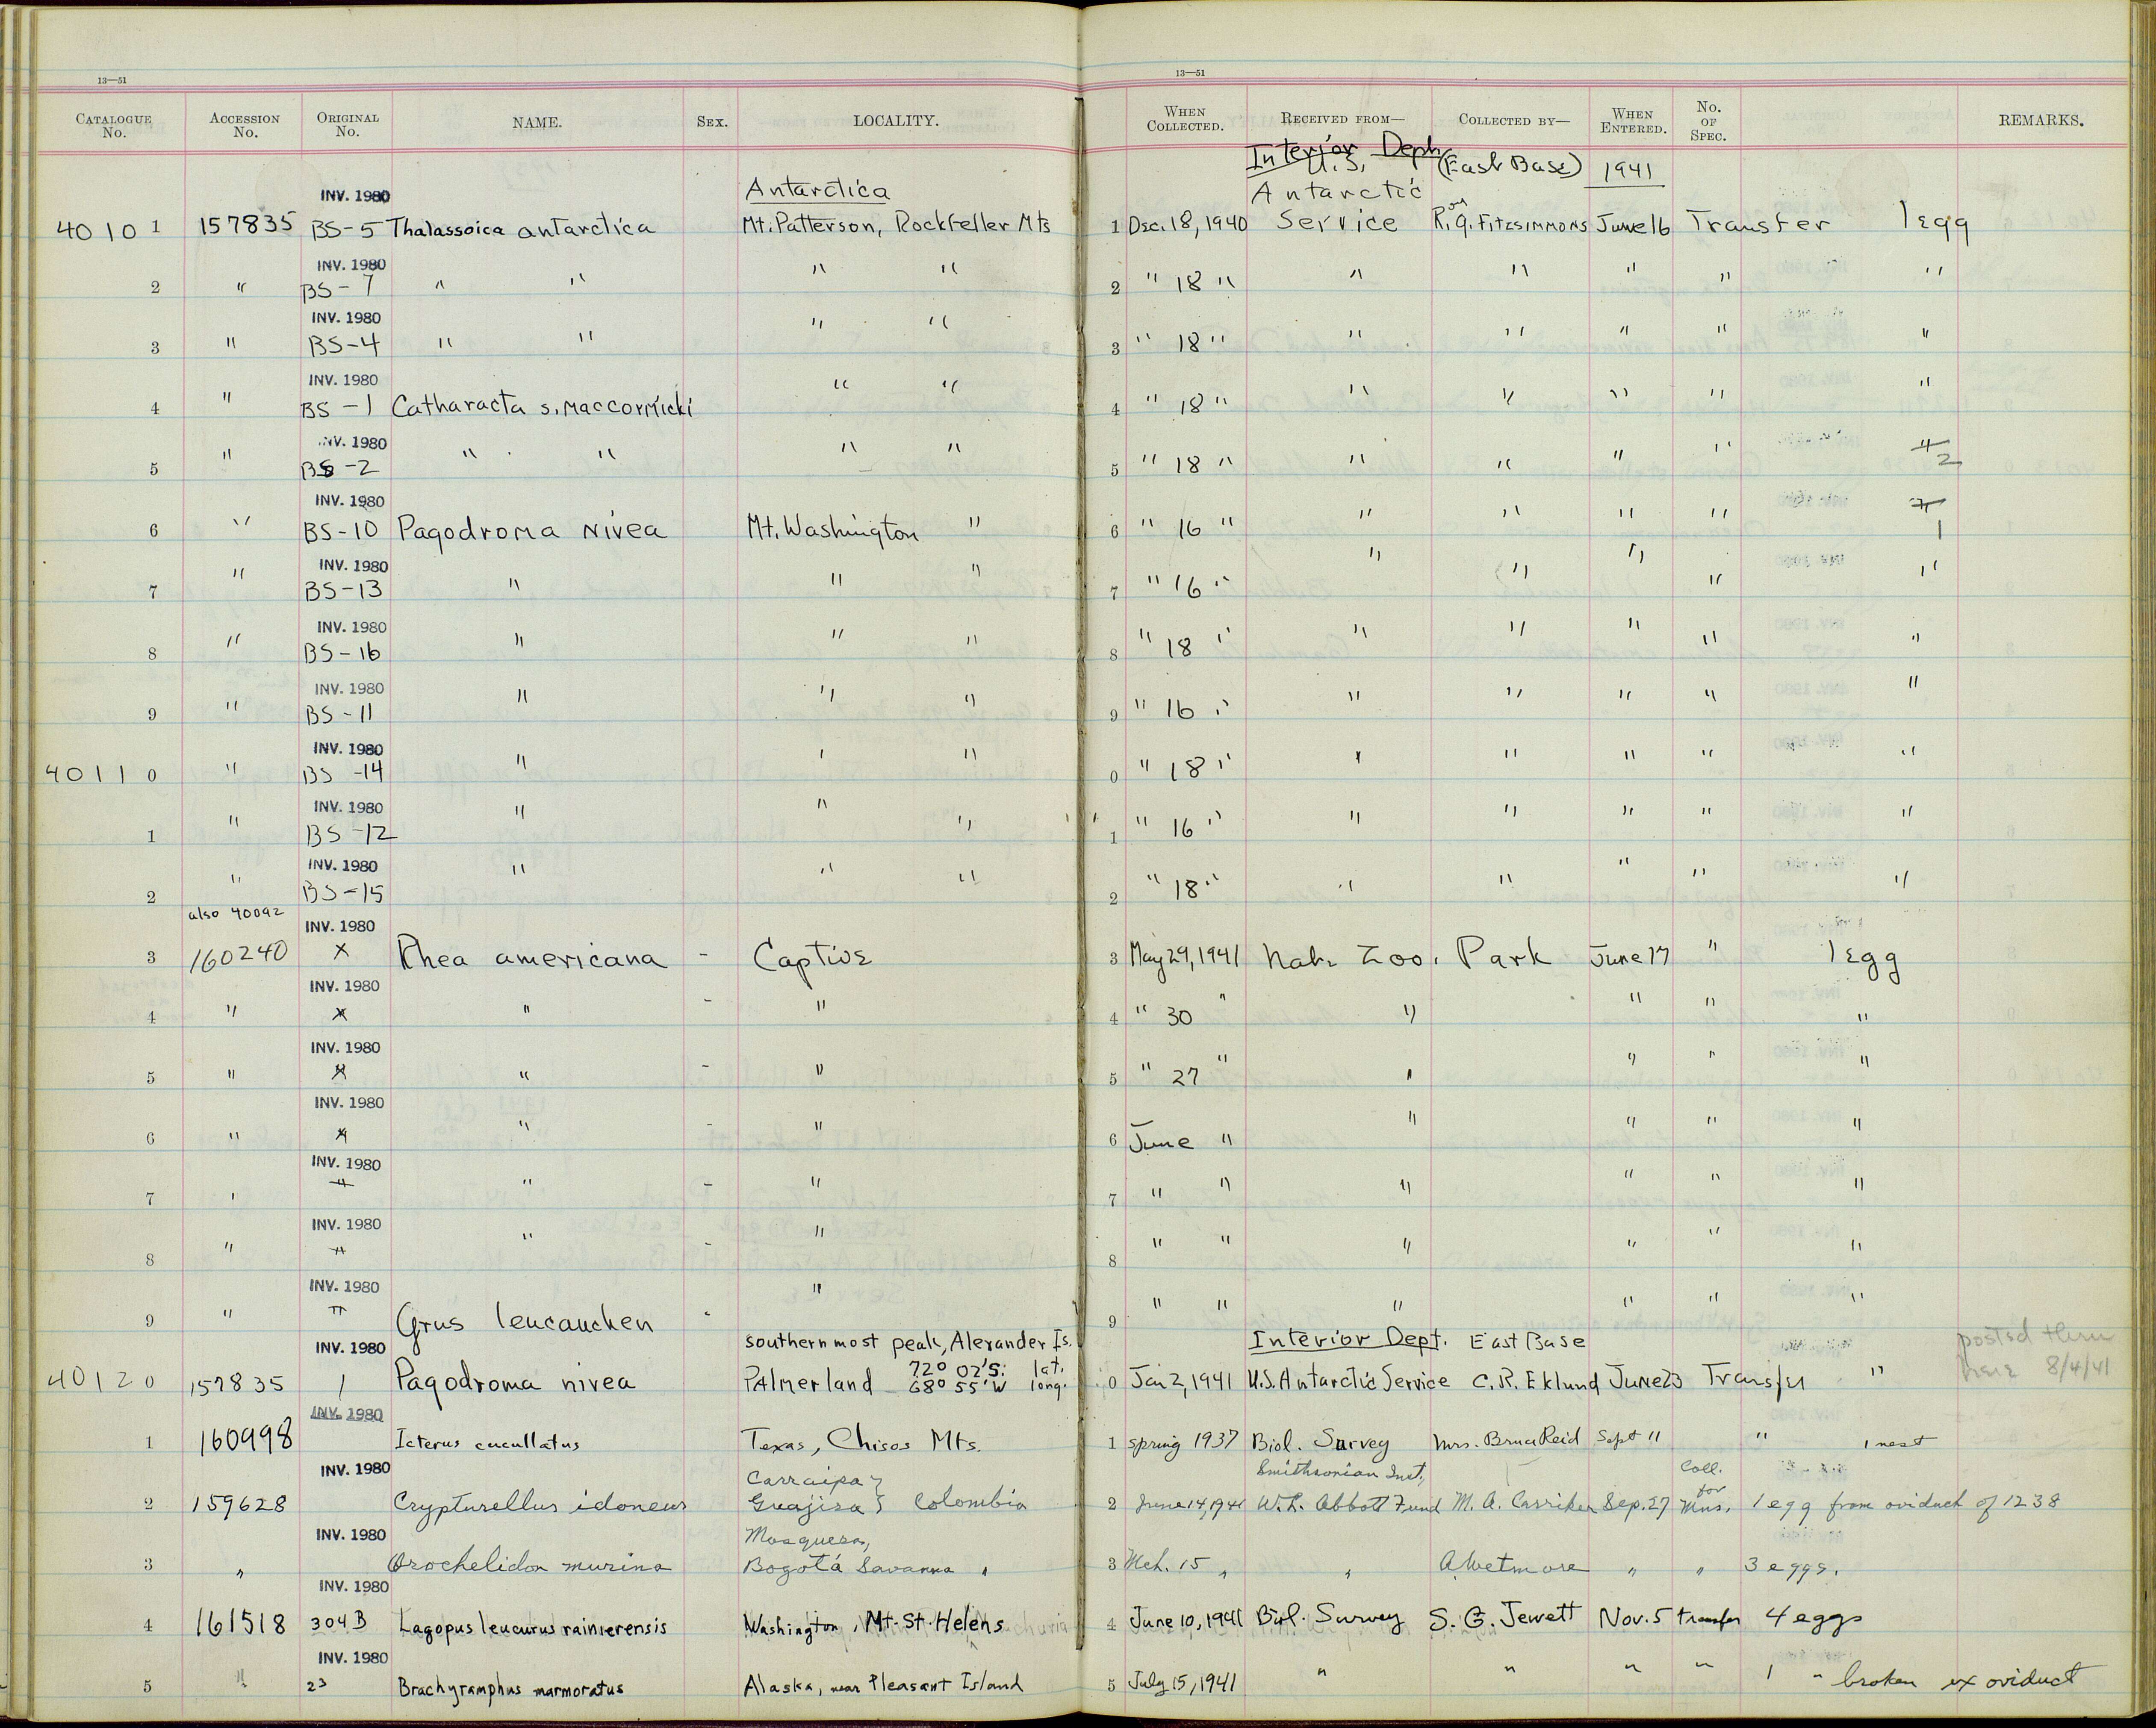 13—51 13—51
CATALOGUE No. ACCESSION No. ORIGINAL No. NAME. SEX. LOCALITY. WHEN COLLECTED. RECEIVED FROM— COLLECTED BY— WHEN ENTERED. No. OF SPEC. REMARKS.
Interior Dept.
INV. 1980 Antarctica U.S. Antarctic (East Base) 1941
4010 1 157835 BS-5 Thalassoica antarctica Mt. Patterson, Rockfeller Mts 1 Dec. 18, 1940 Service FitzSimmons June 16 Transfer 1 egg
INV. 1980
2 " BS-7 " " " " 2 " 18 " " " " " "
INV. 1980
3 " BS-4 " " " " 3 " 18 " " " " " "
INV. 1980
4 " BS-1 Catharacta s. maccormicki " " 4 " 18 " " " " " "
INV. 1980
5 " BS-2 " " " " 5 " 18 " " " " " 2
INV. 1980
6 " BS-10 Pagodroma nivea Mt. Washington " 6 " 16 " " " " " 1
INV. 1980
7 " BS-13 " " " 7 " 16 " " " " " "
INV. 1980
8 " BS-16 " " " 8 " 18 " " " " " "
INV. 1980
9 " BS-11 " " " 9 " 16 " " " " " "
INV. 1980
4011 0 " BS-14 " " " 0 " 18 " " " " " "
INV. 1980
1 " BS-12 " " " 1 " 16 " " " " " "
INV. 1980
2 " BS-15 " " " 2 " 18 " " " " " "
also 40092 INV. 1980
3 160240 X Rhea americana - Captive 3 May 29, 1941 Nat. Zoo. Park June 17 " 1 egg
INV. 1980
4 " X " - " 4 " 30 " " " " "
INV. 1980
5 " X " - " 5 " 27 " " " " "
INV. 1980
6 " X " - " 6 June " " " " "
INV. 1980
7 " " " - " 7 " " " " " "
INV. 1980
8 " " " - " 8 " " " " " "
INV. 1980
9 " " Grus leucauchen - " 9 " " " " " "
INV. 1980 southernmost peak, Alexander Is. Interior Dept. East Base posted thru
72° 02' S. lat.
4012 0 157835 1 Pagodroma nivea Palmerland 68° 55' W long. 0 Jan 2, 1941 U.S. Antarctic Service C. R. Eklund June 23 Transfer " here 8/4/41
INV. 1980
1 160998 Icterus cucullatus Texas, Chisos Mts. 1 spring 1937 Biol. Survey Mrs. Bruce Reid Sept 11 " 1 nest
INV. 1980 Carraipa Smithsonian Inst., Coll. for
2 159628 Crypturellus idoneus Guajira Colombia 2 June 14, 1941 W. L. Abbott Fund M. A. Carriker Sep. 27 Mus. 1 egg from oviduct of 1238
INV. 1980 Mosquera,
3 " Orochelidon murina Bogotá Savanna " 3 Mch. 15 " " A. Wetmore " " 3 eggs.
INV. 1980
4 161518 304B Lagopus leucurus rainierensis Washington, Mt. St. Helens 4 June 10, 1941 Biol. Survey S. G. Jewett Nov. 5 transfer 4 eggs
INV. 1980
5 " 23 Brachyramphus marmoratus Alaska, near Pleasant Island 5 July 15, 1941 " " " " 1 " broken ex oviduct